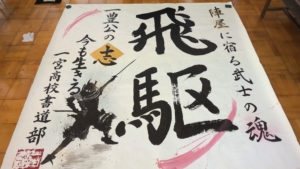 陣屋に宿る武士の魂
飛駆
一豊公の志
今も生きる
一宮高校書道部